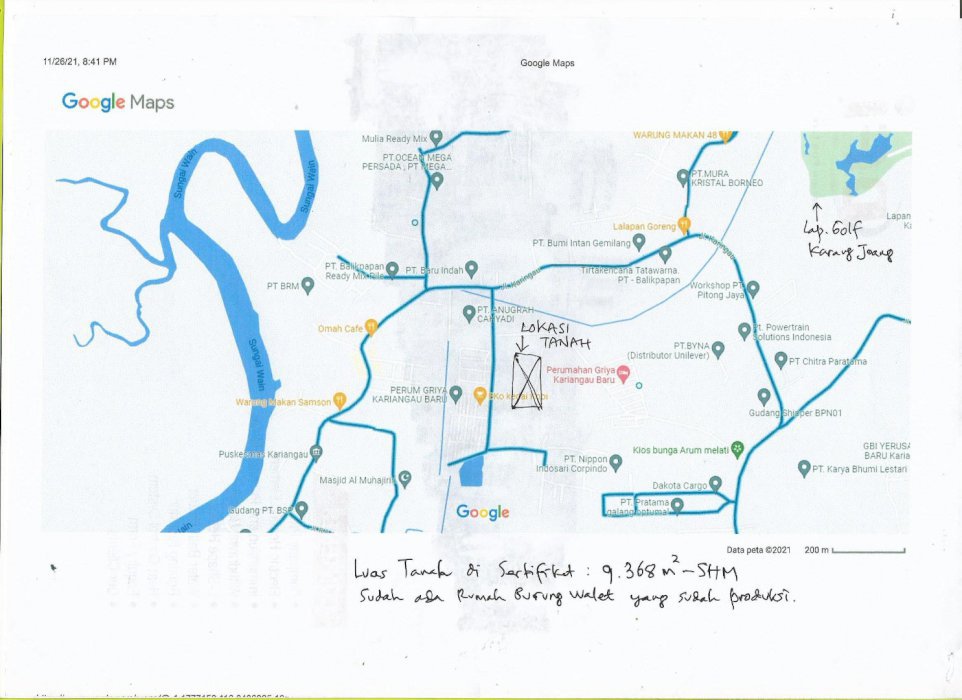 11/26/21, 8:41 PM
Google Maps
Google Maps
Mulia Ready Mix
WARUNG MAKAN 48
PT.OCEAN MEGA
PERSADA , PT MEGA...
Sungai Wain
Sungai Wain
PT.MURA
KRISTAL BORNEO
Lapan
Lalapan Goreng
Lap. Golf
Karang Joang
PT. Bumi Intan Gemilang
Jl. Kariangau
PT. Balikpapan
Ready Mix Pile
PT. Baru Indah
Tirtakencana Tatawarna.
PT - Balikpapan
Jl. Kariangau
PT BRM
Workshop PT
Pitong Jaya
PT. ANUGRAH
CAHYADI
Omah Cafe
LOKASI
TANAH
Pt. Powertrain
Solutions Indonesia
Sungai Wain
PT.BYNA
(Distributor Unilever)
PT Chitra Paratama
Perumahan Griya
Kariangau Baru
PERUM GRIYA
KARIANGAU BARU
Warung Makan Samson
Gudang Shipper BPN01
Puskesmas Kariangau
Kios bunga Arum melati
GBI YERUSA
BARU Karia
PT. Nippon
Indosari Corpindo
PT. Karya Bhumi Lestari
Masjid Al Muhajirin
Dakota Cargo
Gudang PT. BSP
Google
PT. Pratama
galang optumal
Wain
Data peta ©2021 200 m
Luas Tanah di Sertifikat : 9.368 m² - SHM
Sudah ada Rumah Burung Walet yang sudah produksi.